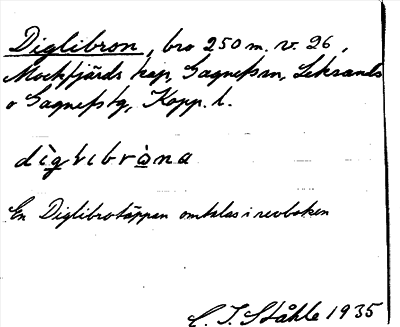 Diglibron, bro 250 m. v. 26,
Mockfjärds kap, Gagnefs sn, Leksands
o Gagnefs tg, Kopp. l.
dìglibròna
En Diglibrotäppan omtalas i revboken
C. I. Ståhle 1935